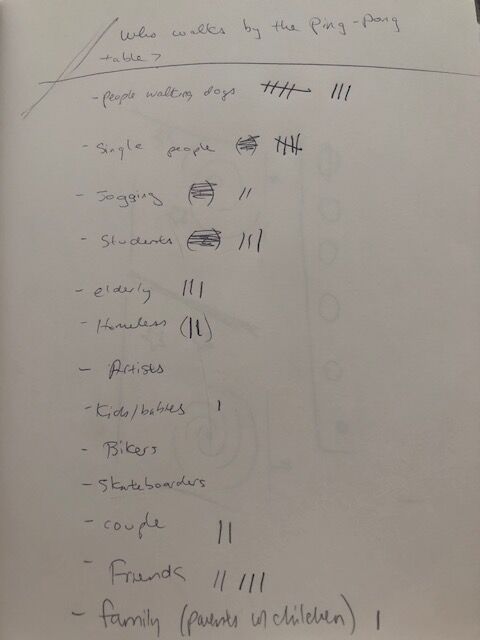 Who walks by the Ping-Pong
table?
- people walking dogs 卌 III
- Single people 卌
- Jogging II
- Students III
- elderly III
- Homeless (II)
- Artists
- Kids/babies I
- Bikers
- Skateboarders
- couple II
- Friends II III
- family (parents w/ children) I